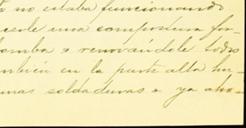 no estaba funcionando
una compostura for-
omba a renovándole todo
mbién en la parte alta hu-
unas soldaduras a ya aho-